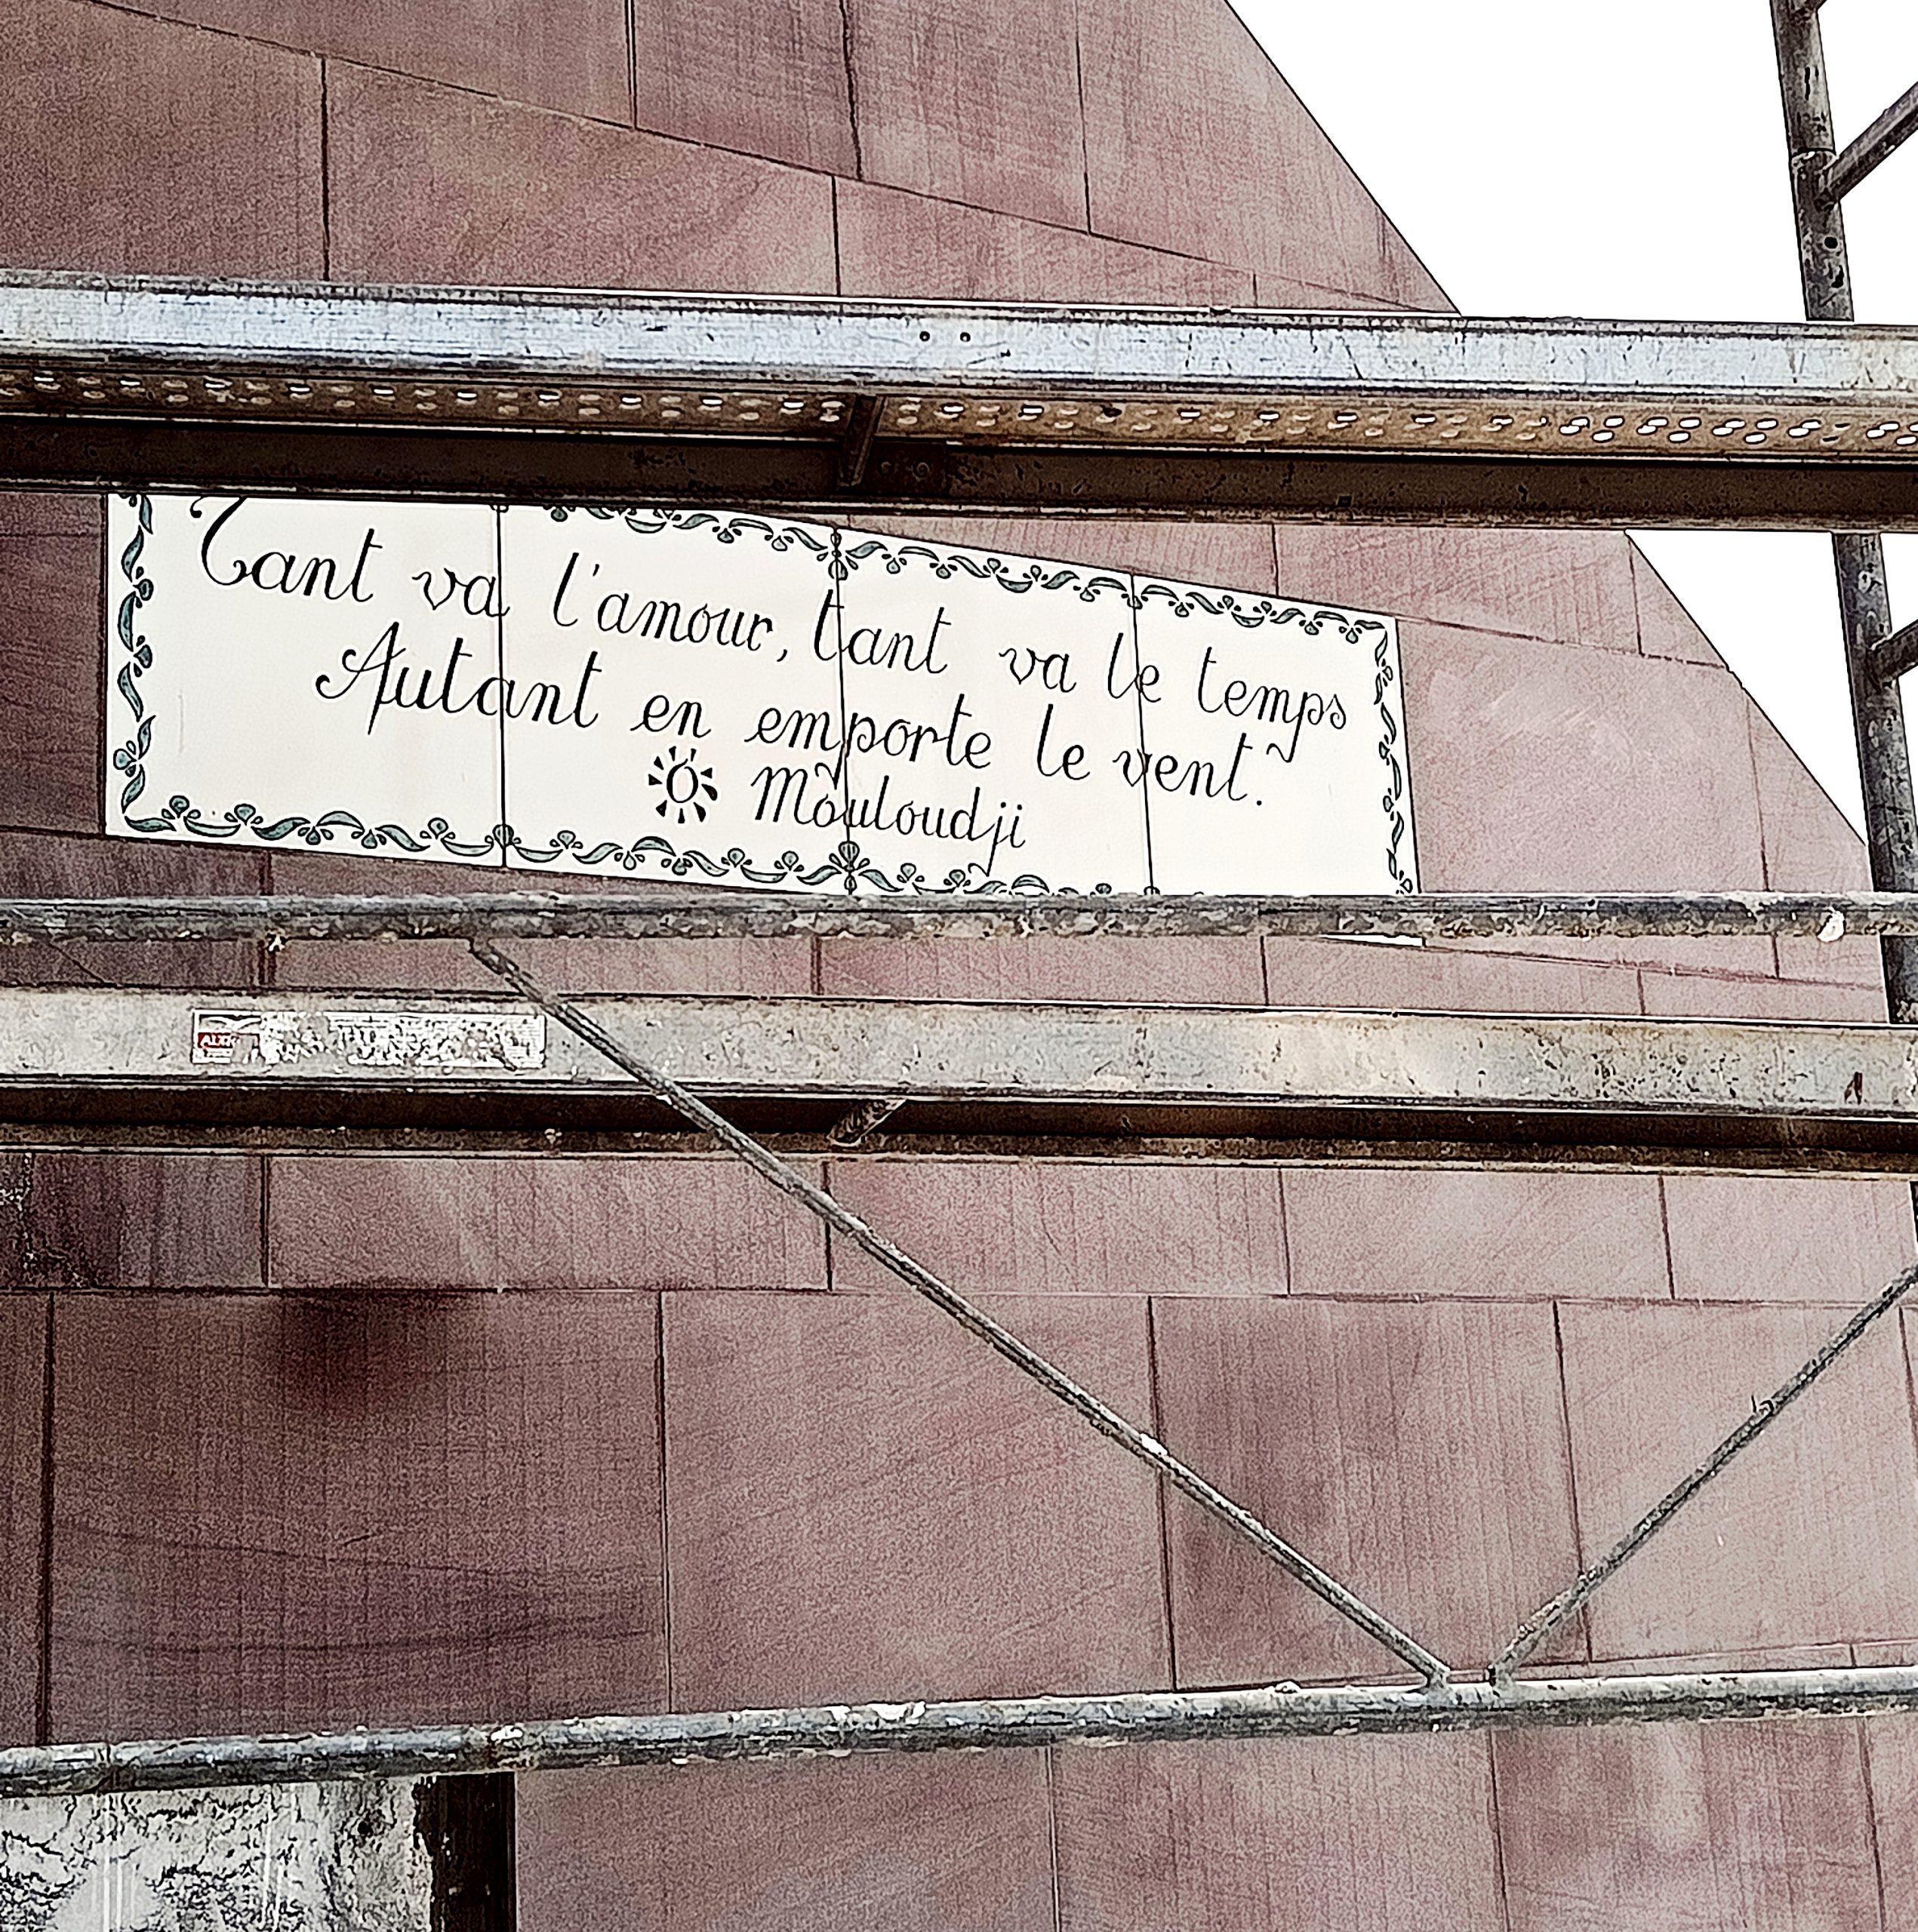 Tant va l'amour, tant va le temps
Autant en emporte le vent.
Mouloudji